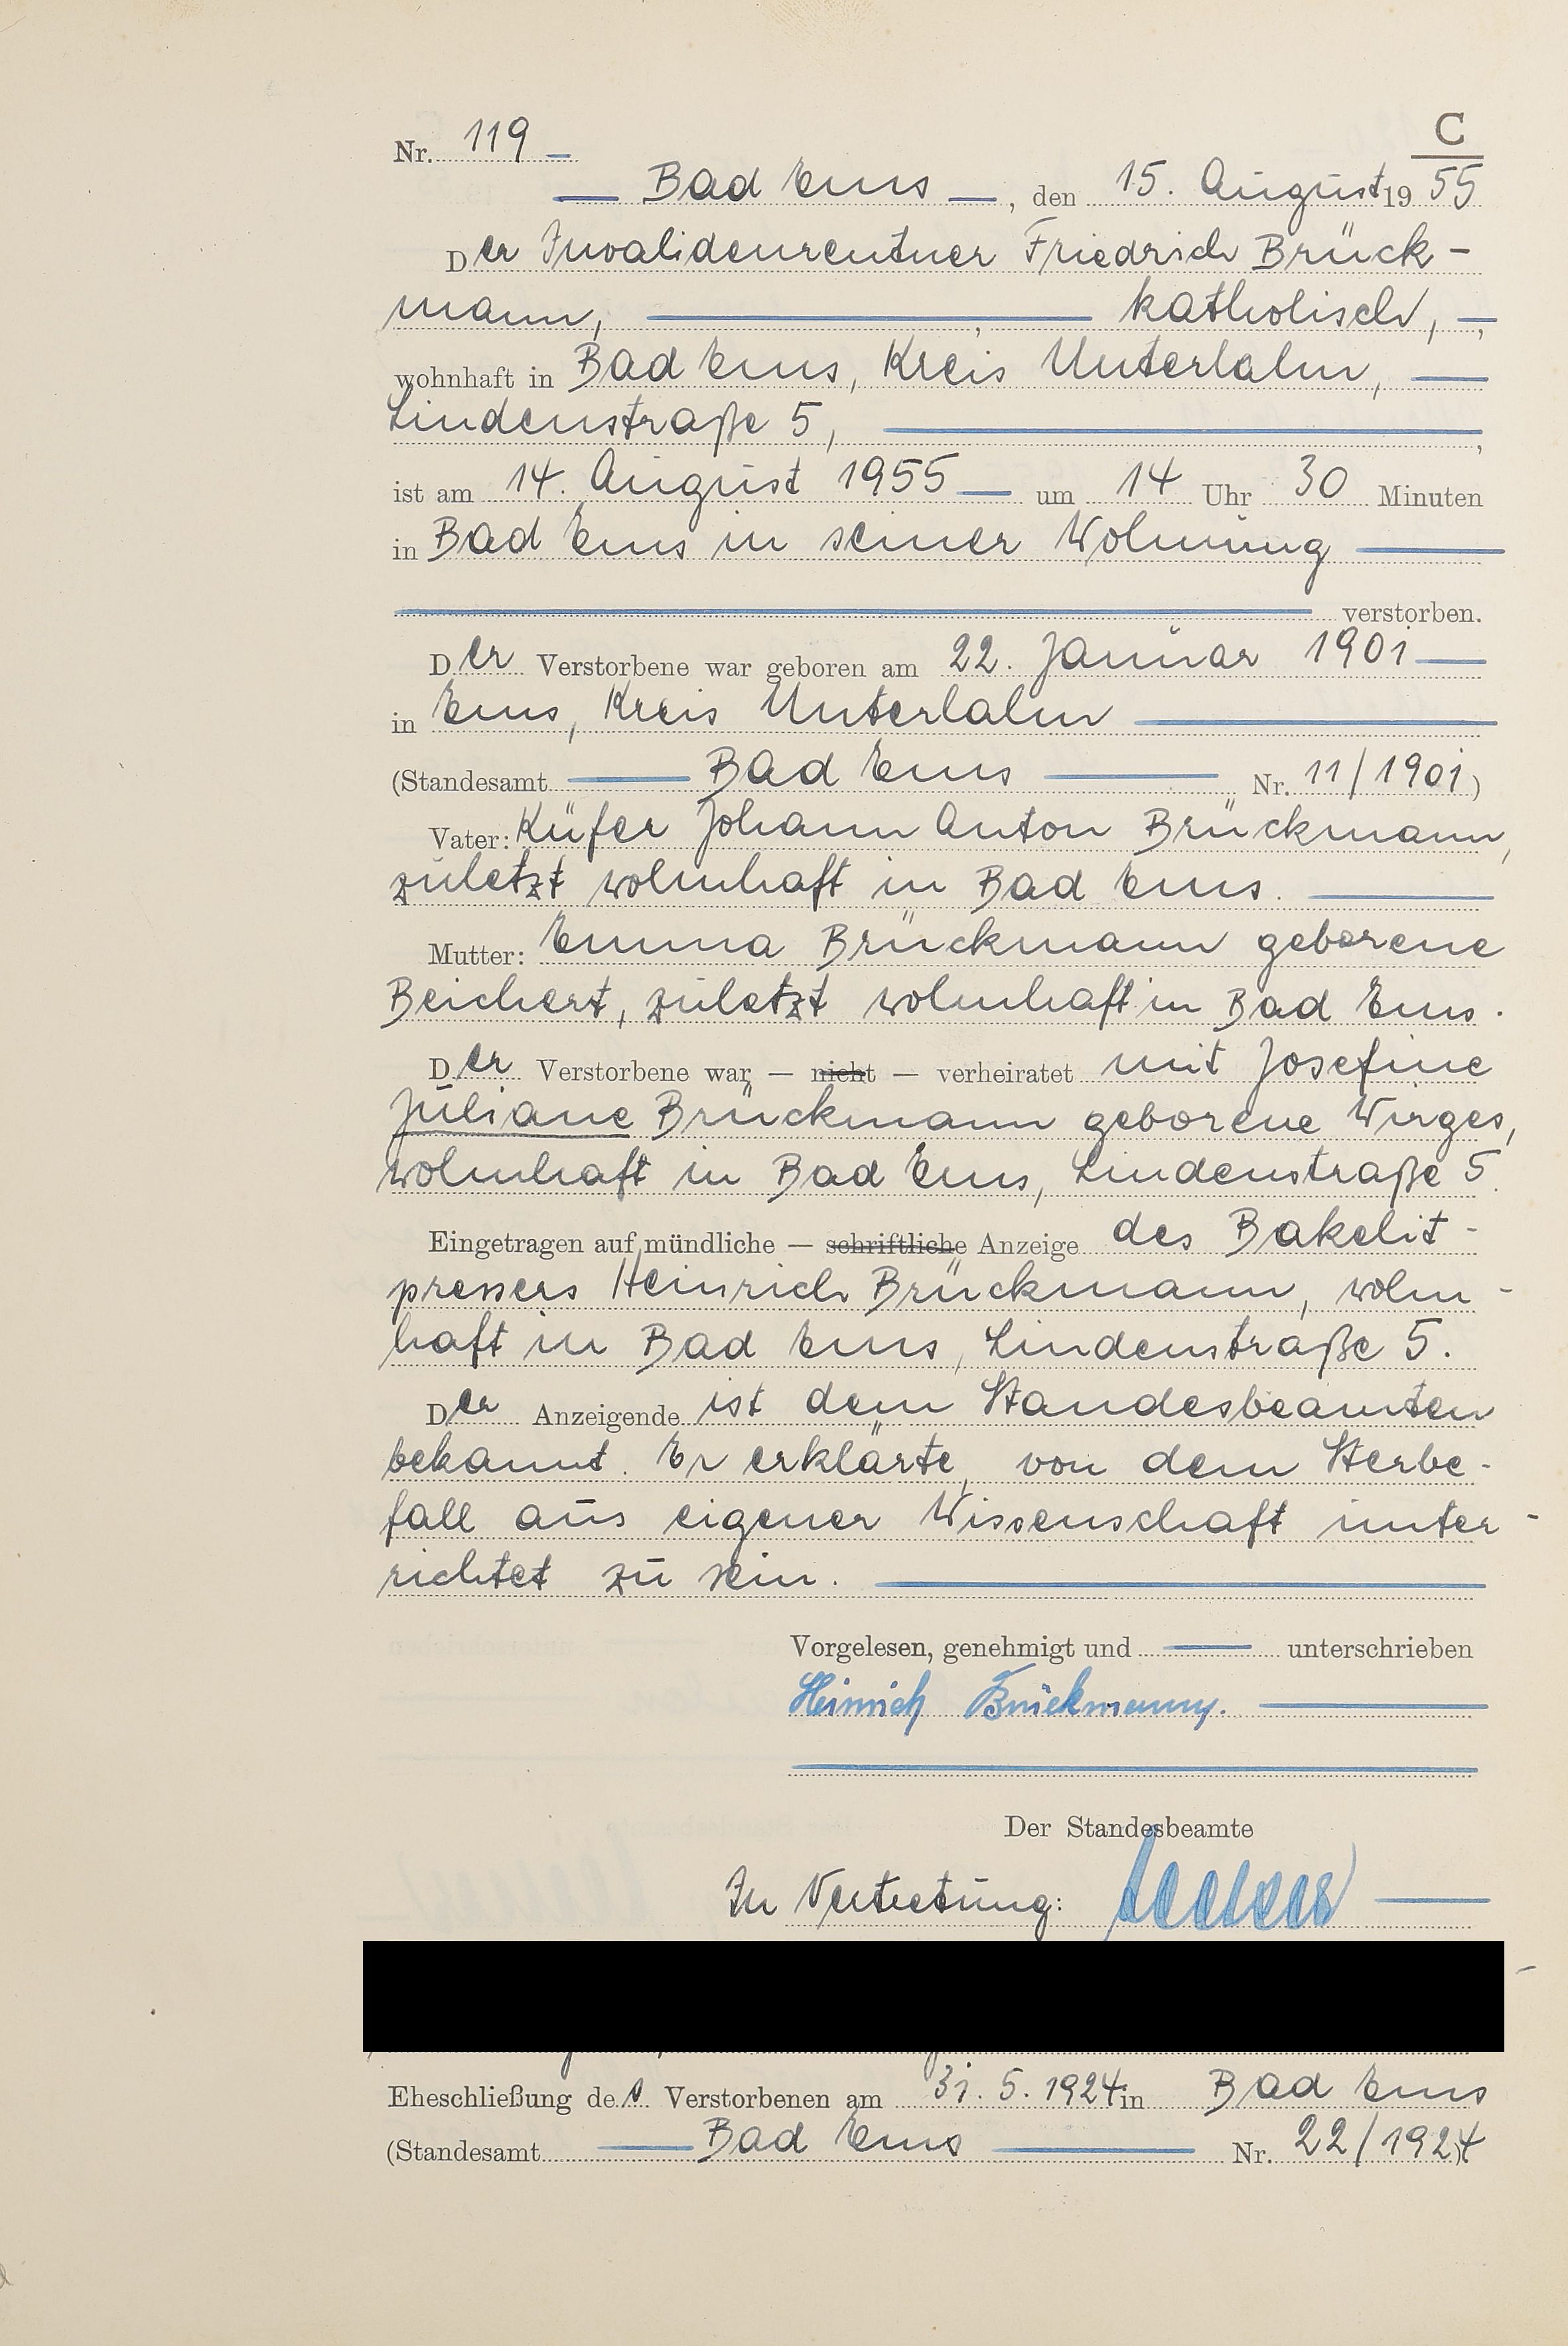 C
Nr. 119
Bad Ems, den 15. August 1955
Der Invalidenrentner Friedrich Brück-
mann, , katholisch, ,
wohnhaft in Bad Ems, Kreis Unterlahn,
Lindenstraße 5, ,
ist am 14. August 1955 um 14 Uhr 30 Minuten
in Bad Ems in seiner Wohnung
verstorben.
Der Verstorbene war geboren am 22. Januar 1901
in Ems, Kreis Unterlahn
(Standesamt Bad Ems Nr. 11/1901)
Vater: Küfer Johann Anton Brückmann,
zuletzt wohnhaft in Bad Ems.
Mutter: Emma Brückmann geborene
Beichert, zuletzt wohnhaft in Bad Ems.
Der Verstorbene war — nicht — verheiratet mit Josefine
Juliane Brückmann geborene Wirges,
wohnhaft in Bad Ems, Lindenstraße 5.
Eingetragen auf mündliche — schriftliche Anzeige des Bakelit-
pressers Heinrich Brückmann, wohn-
haft in Bad Ems, Lindenstraße 5.
Der Anzeigende ist dem Standesbeamten
bekannt. Er erklärte, von dem Sterbe-
fall aus eigener Wissenschaft unter-
richtet zu sein.
Vorgelesen, genehmigt und unterschrieben
Heinrich Brückmann.
Der Standesbeamte
In Vertretung:
Eheschließung des Verstorbenen am 31.5.1924 in Bad Ems
(Standesamt Bad Ems Nr. 22/1924)